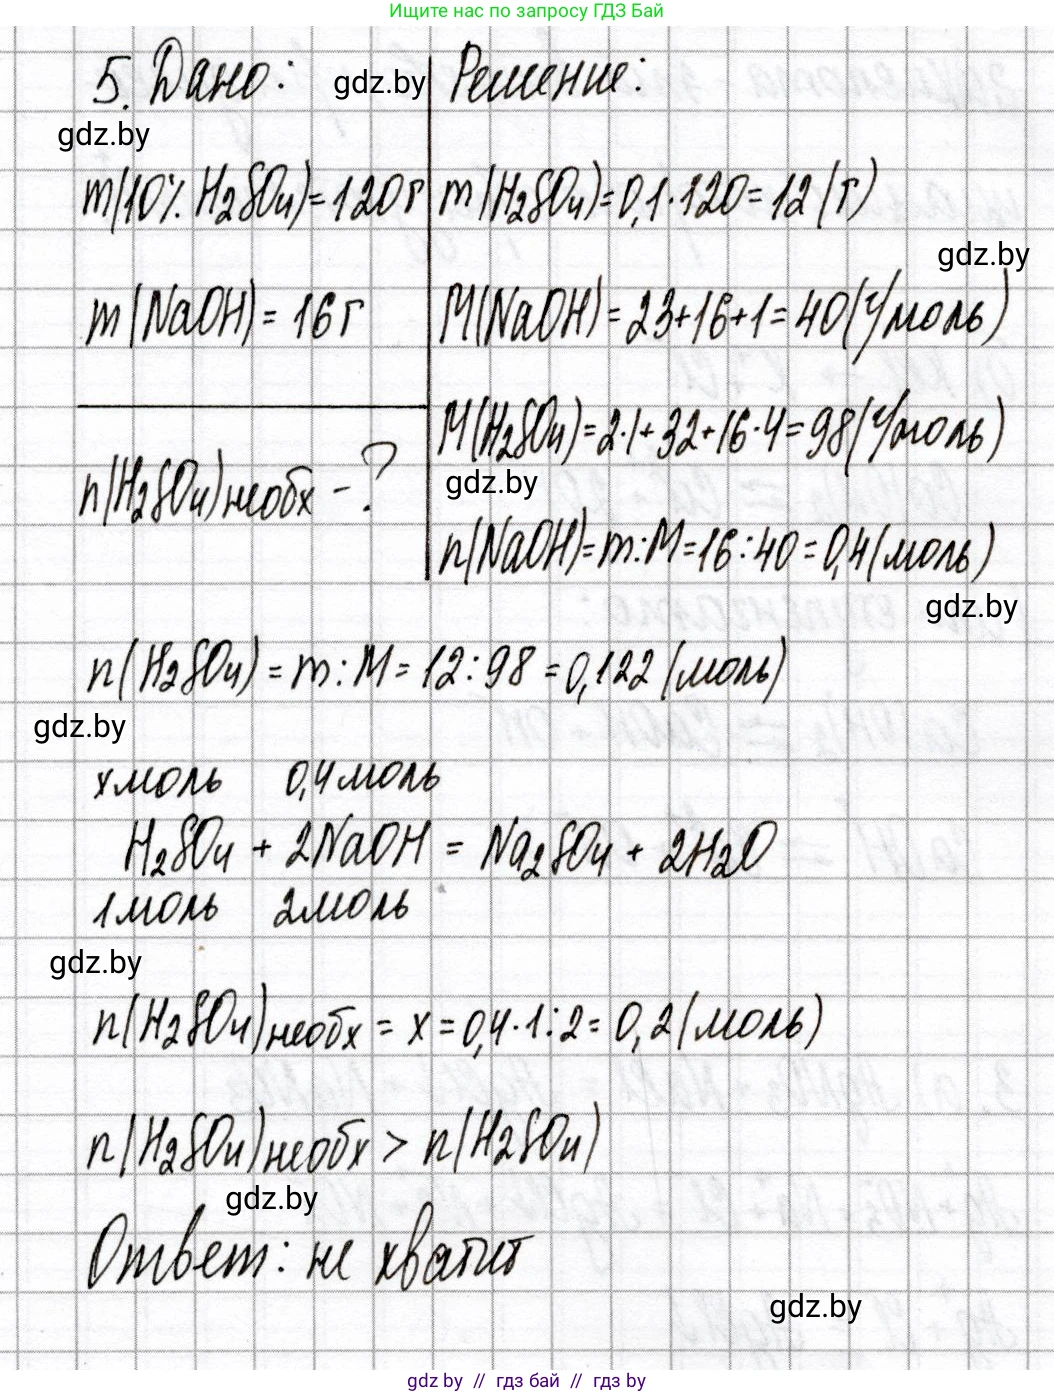 Ищите нас по запросу ГДЗ Бай
5. Дано: gdz.by Решение:
gdz.by
m(10% H₂SO₄)=120г m(H₂SO₄)=0,1·120=12(г)
gdz.by
m(NaOH)=16г M(NaOH)=23+16+1=40(г/моль)
M(H₂SO₄)=2·1+32+16·4=98(г/моль)
n(H₂SO₄)необх-? gdz.by
n(NaOH)=m:M=16:40=0,4(моль)
gdz.by
n(H₂SO₄)=m:M=12:98=0,122(моль)
gdz.by
xмоль 0,4моль
H₂SO₄ + 2NaOH = Na₂SO₄ + 2H₂O
1моль 2моль
gdz.by
n(H₂SO₄)необх = x = 0,4·1:2 = 0,2(моль)
n(H₂SO₄)необх > n(H₂SO₄)
gdz.by
Ответ: не хватит
gdz.by
gdz.by // гдз бай // гдз by